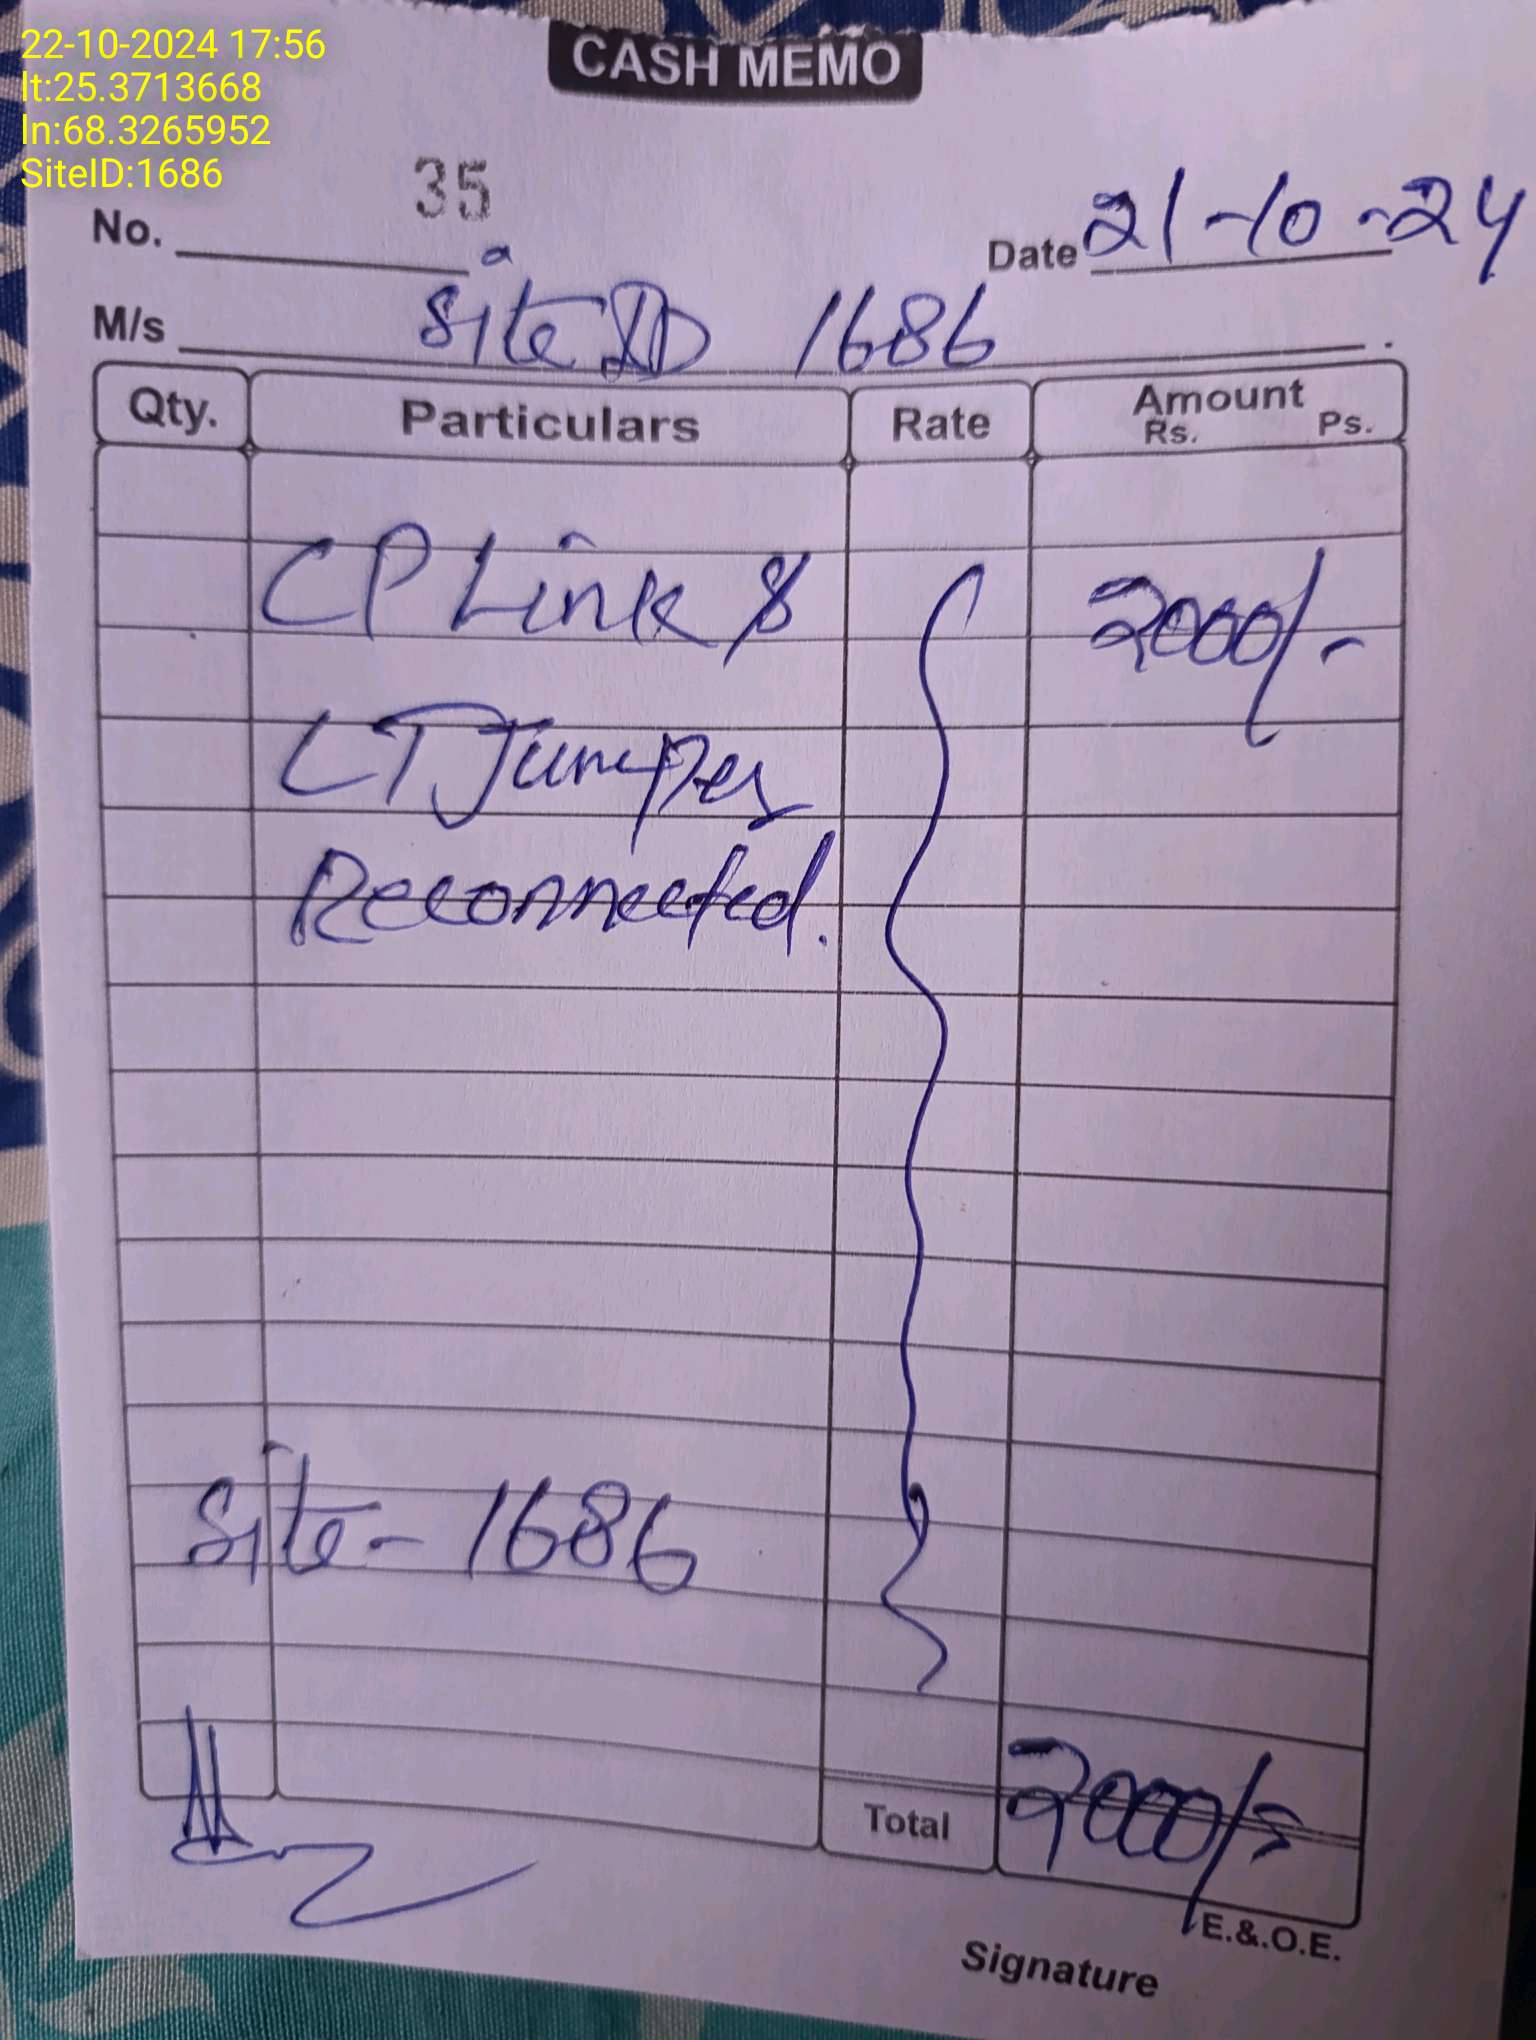 22-10-2024 17:56
lt:25.3713668
ln:68.3265952
SiteID:1686
CASH MEMO
No. 35
Date 21-10-24
M/s Site ID 1686
Qty. Particulars Rate Amount
Rs. Ps.
CP Link & 2000/-
LT Jumper
Reconnected.
Site - 1686
Total 2000/=
E.&.O.E.
Signature